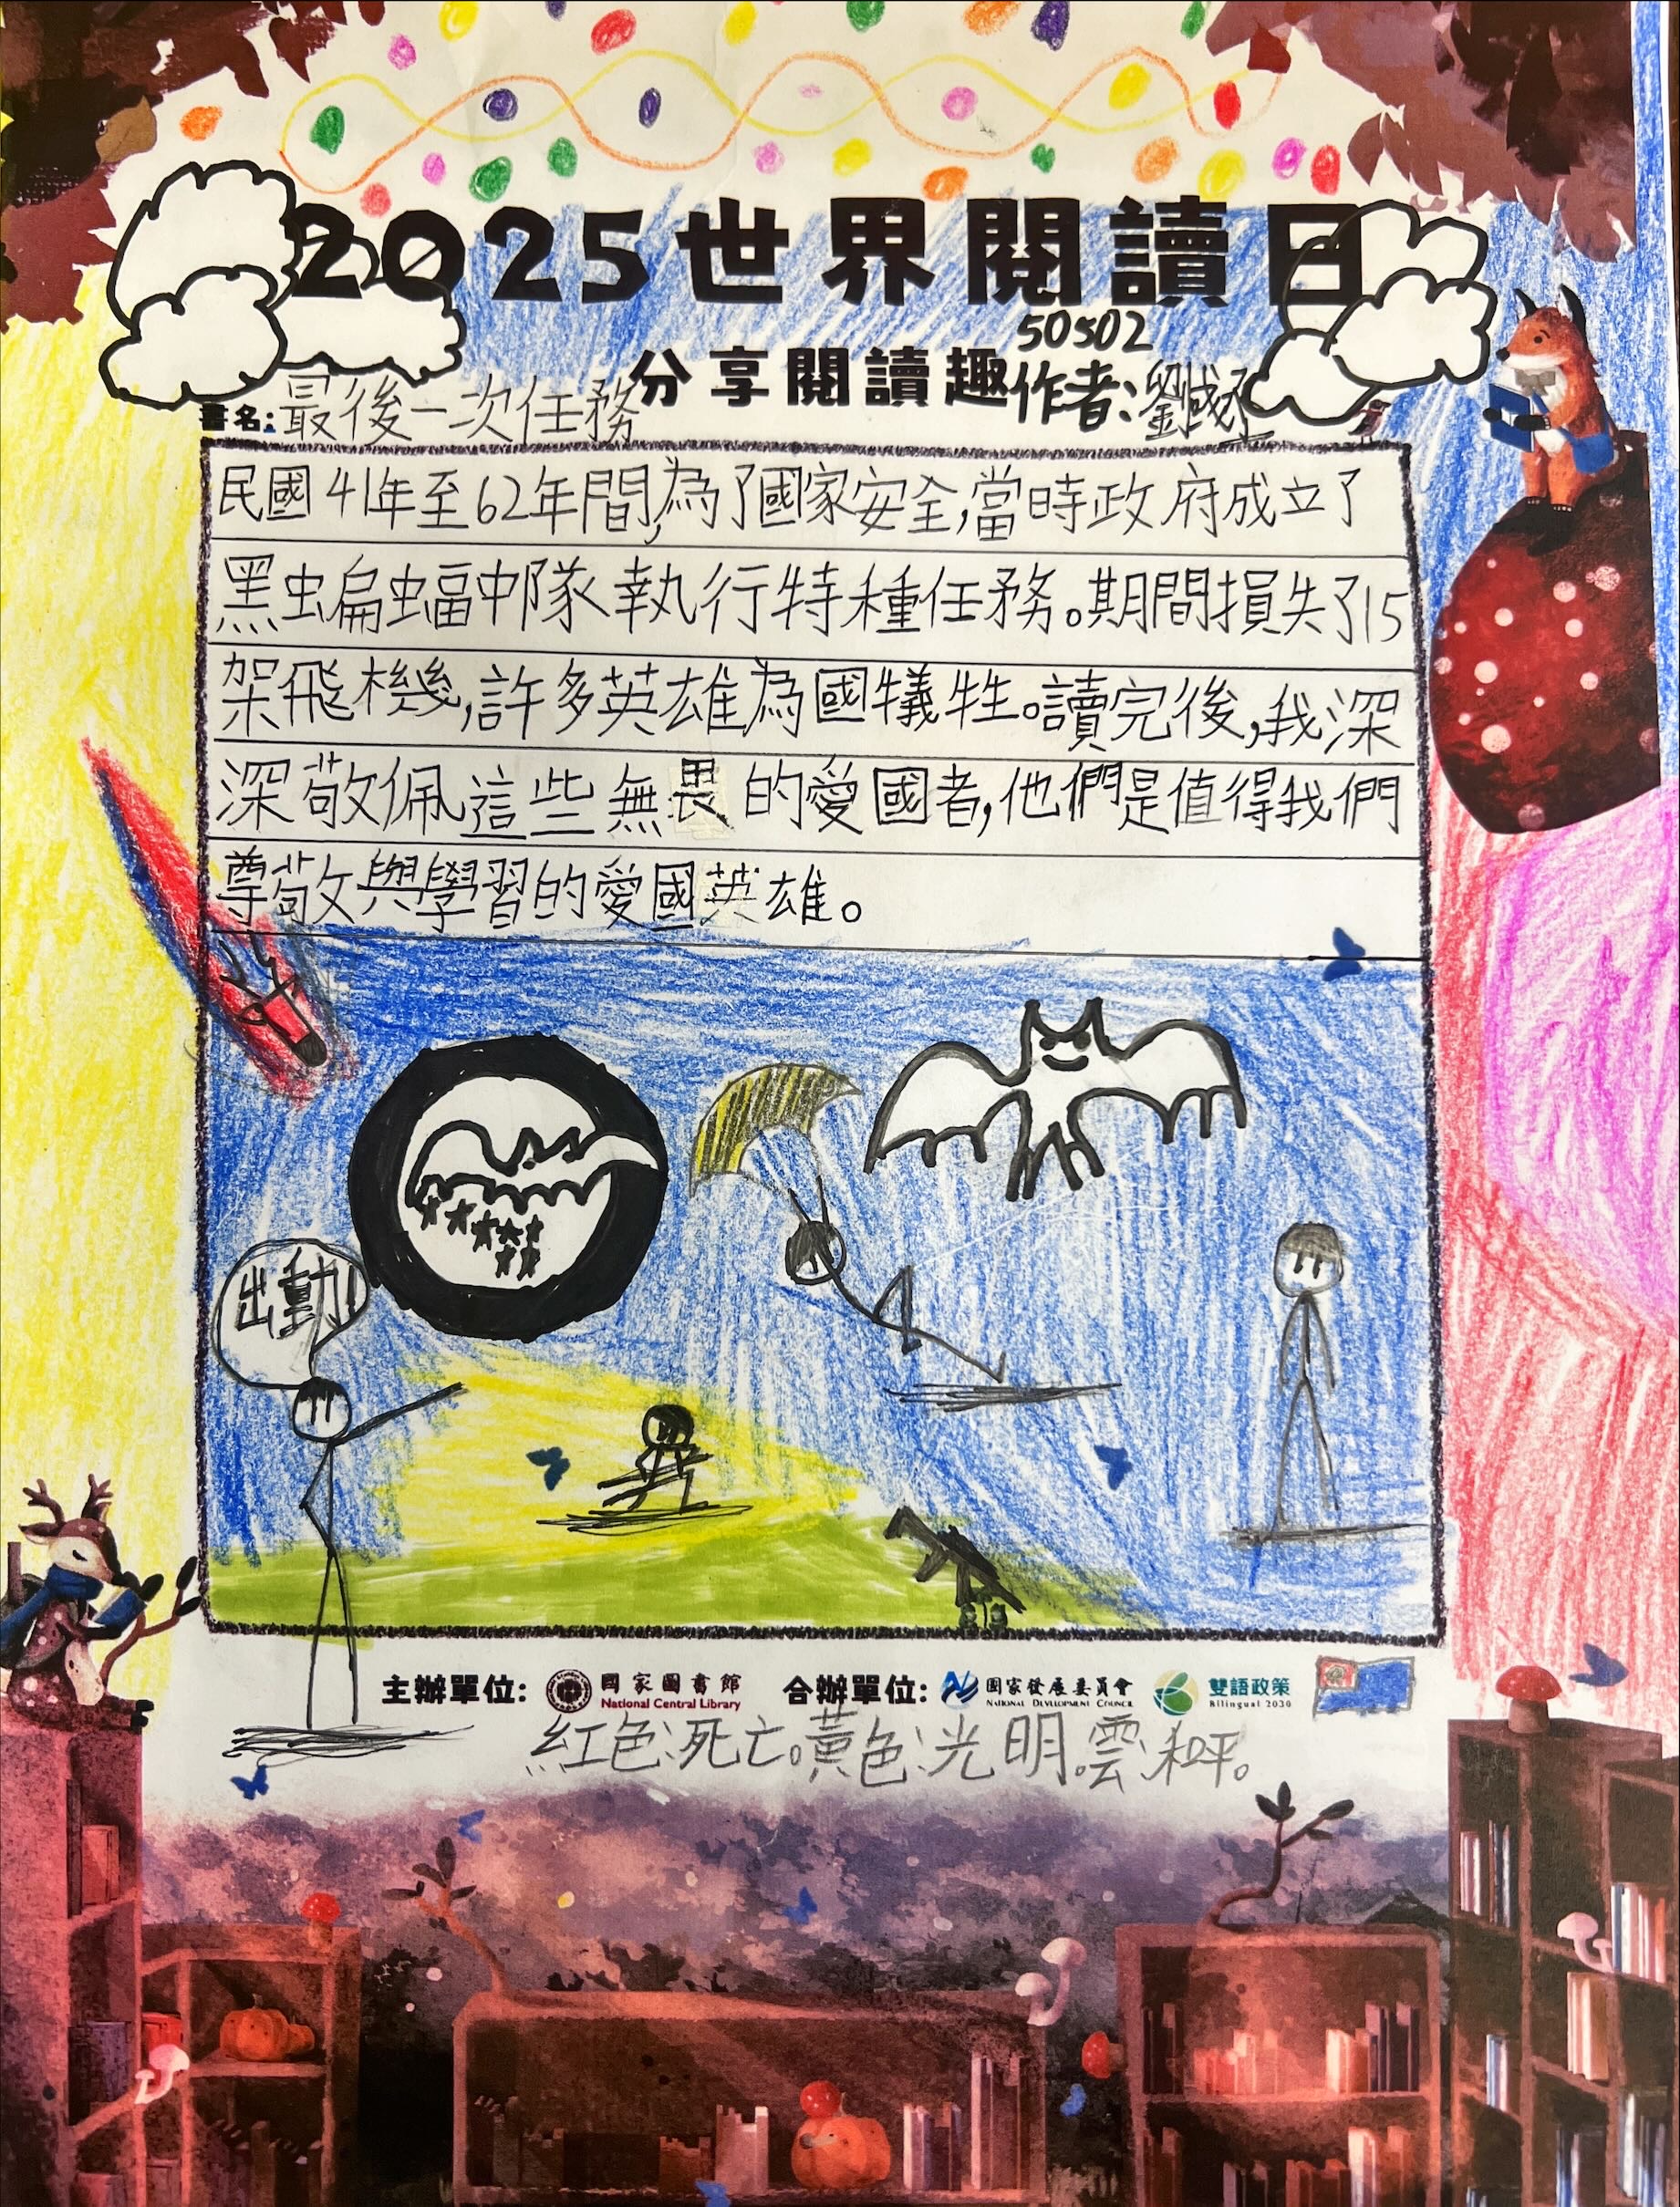 2025世界閱讀日
50502
分享閱讀趣
作者:劉
書名:最後一次任務
民國41年至62年間,為了國家安全,當時政府成立了
黑蝙蝠中隊執行特種任務。期間損失了15
架飛機,許多英雄為國犧牲。讀完後,我深
深敬佩這些無畏的愛國者,他們是值得我們
尊敬與學習的愛國英雄。
出動!
主辦單位: 國家圖書館 National Central Library 合辦單位: 國家發展委員會 NATIONAL DEVELOPMENT COUNCIL 雙語政策 Bilingual 2030
紅色:死亡。黃色:光明。雲:和平。